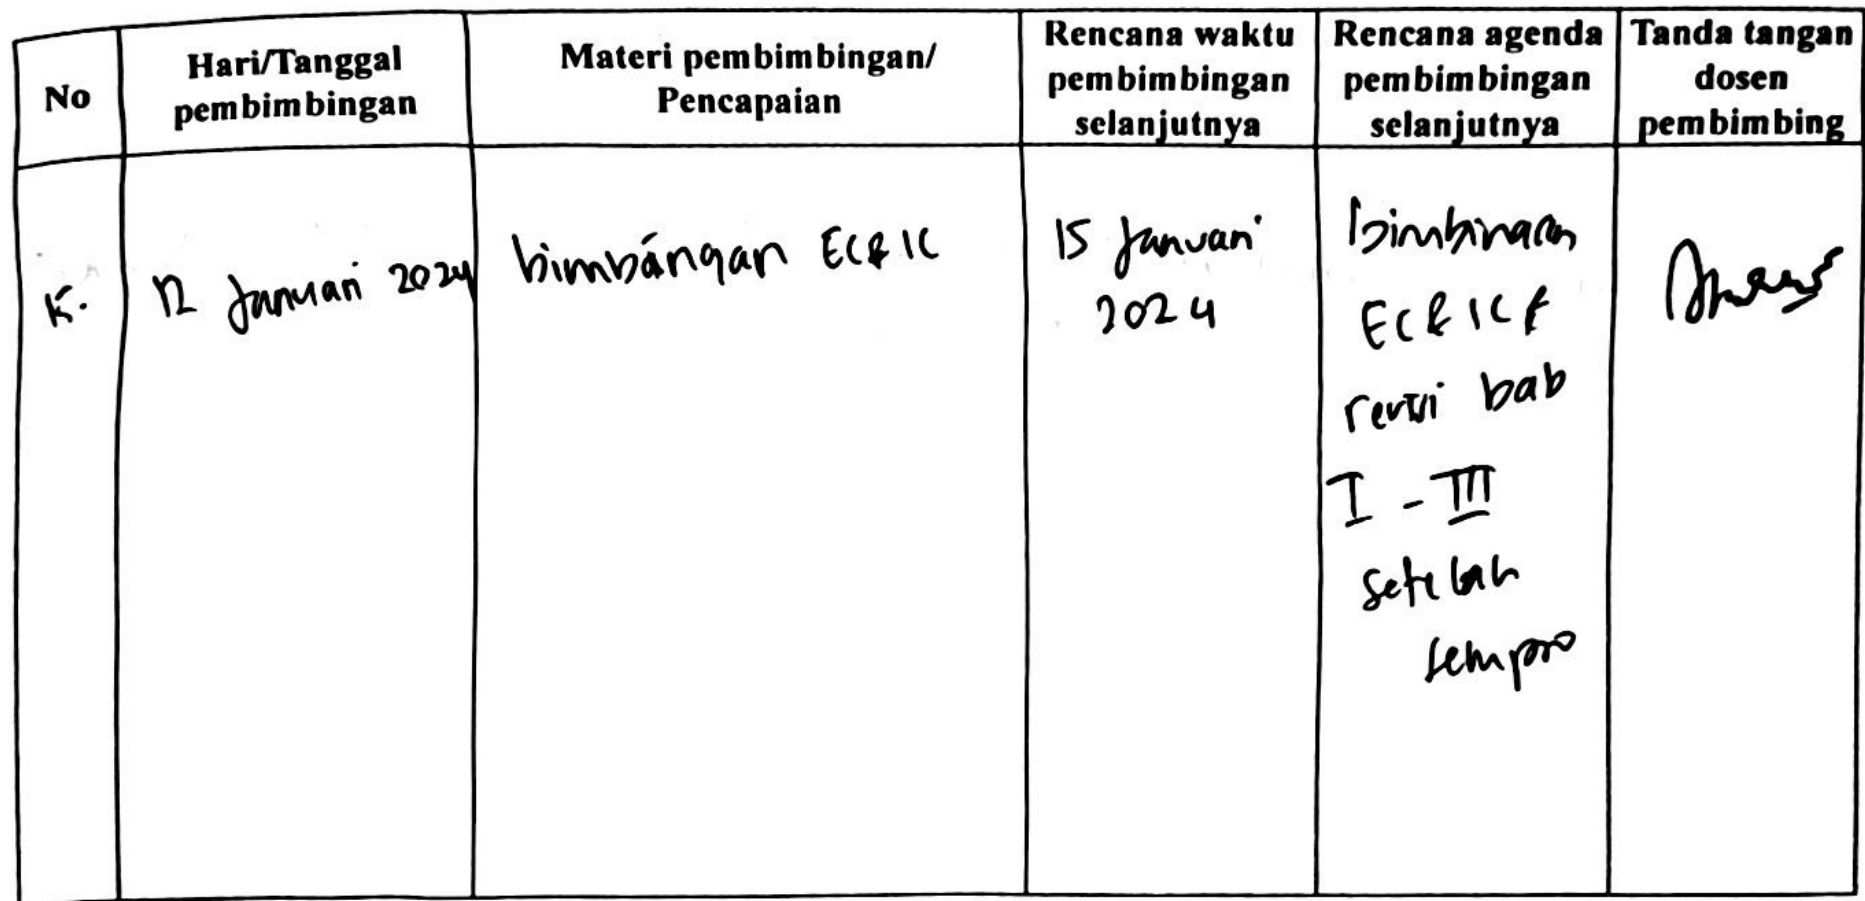 No
Hari/Tanggal
pembimbingan
Materi pembimbingan/
Pencapaian
Rencana waktu
pembimbingan
selanjutnya
Rencana agenda
pembimbingan
selanjutnya
Tanda tangan
dosen
pembimbing
12 Januari 2024
bimbingan EC & IC
15 Januari
2024
bimbingan
EC & IC &
revisi bab
I - III
setelah
sempro